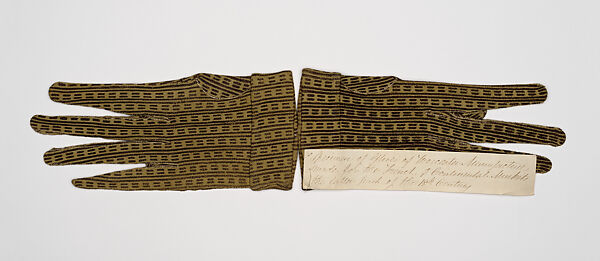 Specimen of Glove of Worcester Manufactory
made for the French & Continental Markets
the latter end of the 18th Century